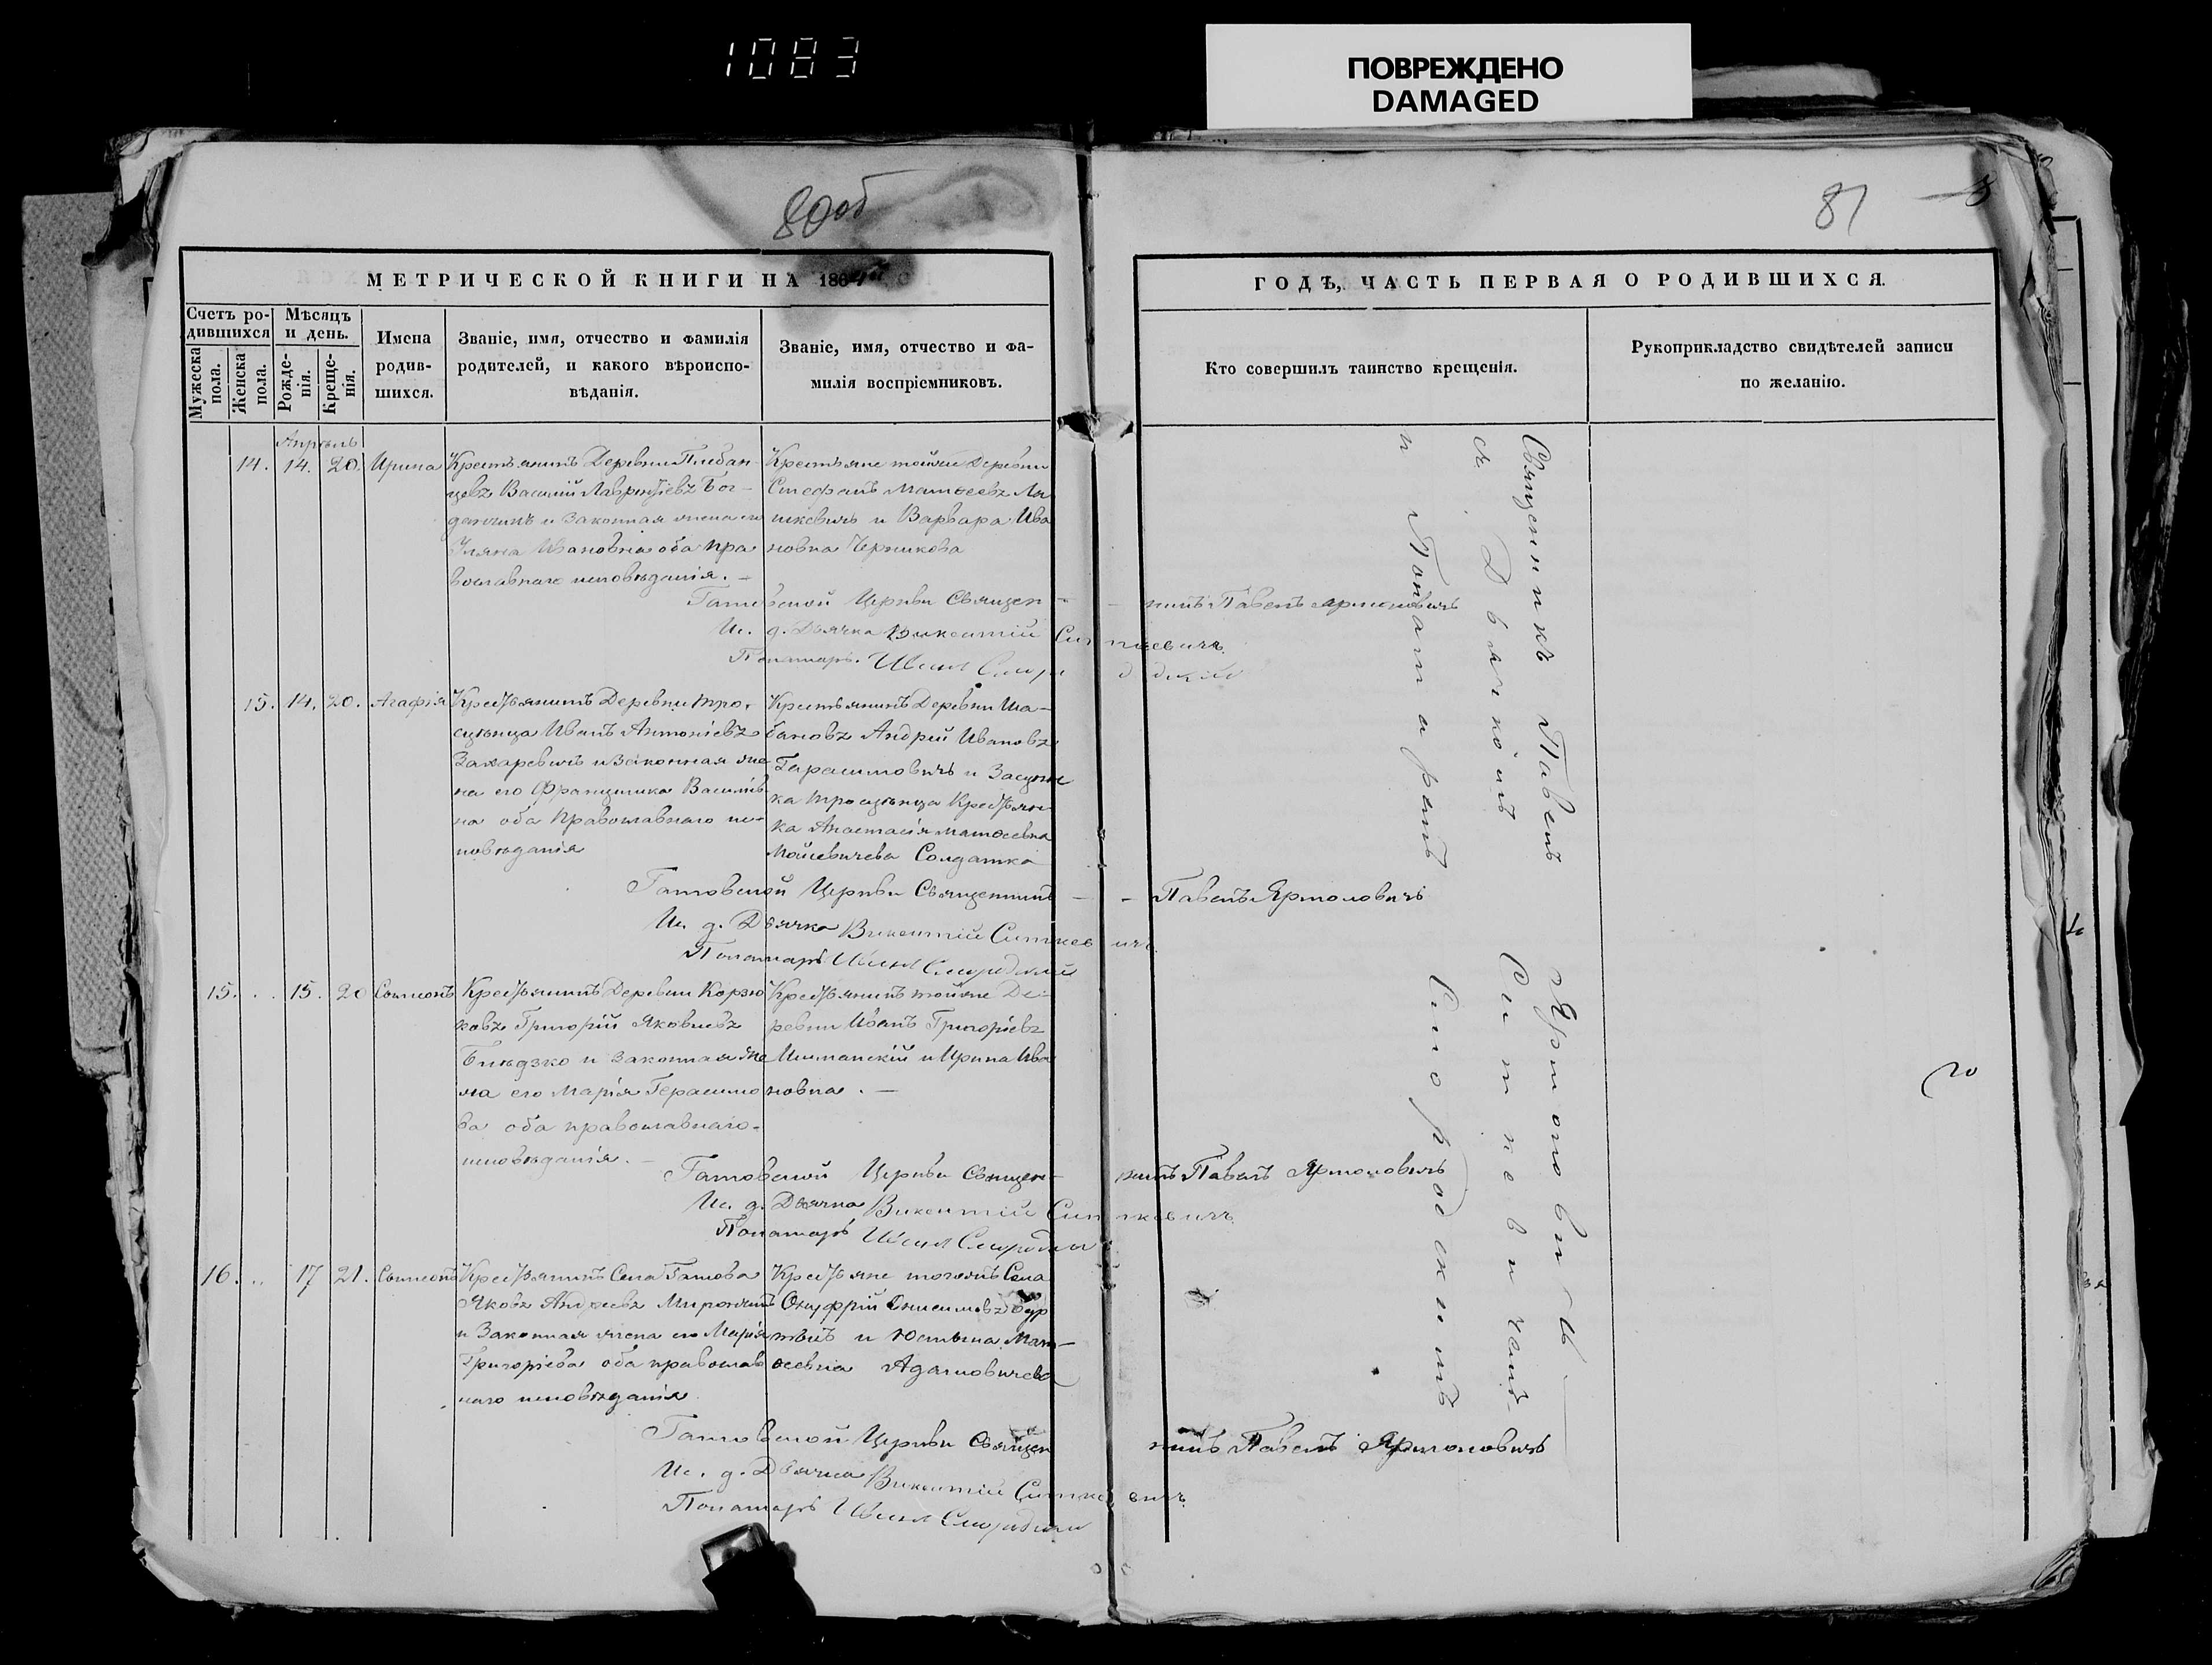 1083
ПОВРЕЖДЕНО
DAMAGED
80об
81
МЕТРИЧЕСКОЙ КНИГИ НА 1864й
Счетъ ро-
дившихся
Мужеска
пола.
Женска
пола.
Мѣсяцъ
и день.
Рожде-
нія.
Креще-
нія.
Имена
родив-
шихся.
Званіе, имя, отчество и фамилія
родителей, и какого вѣроиспо-
вѣданія.
Званіе, имя, отчество и фа-
милія воспріемниковъ.
ГОДЪ, ЧАСТЬ ПЕРВАЯ О РОДИВШИХСЯ.
Кто совершилъ таинство крещенія.
Рукоприкладство свидѣтелей записи
по желанію.
Апрѣль
14. 14. 20. Ирина
Крестьянинъ Деревни Плебан
цевъ Василій Лаврентіевъ Бог-
данчикъ и Законная жена его
Ульяна Ивановна оба пра
вославнаго исповѣданія. —
Крестьяне тойже Деревни
Стефанъ Матѳеевъ Ля
шкевичъ и Варвара Ива
новна Черникова
Гатовской Церкви Священ - - никъ Павелъ Ярмоловичъ
Ис. д. Дьячка Викентій Ситкевичъ.
Понамарь Иванъ Смородскій
15. 14. 20. Агафія
Крестьянинъ Деревни Тро-
сцѣнца Иванъ Антоніевъ
Захаревичъ и Законная же
на его Францишка Васильев
на оба Православнаго ис-
повѣданія
Крестьянинъ Деревни Ша-
бановъ Андрей Ивановъ
Герасимовичъ и
ка Тросцѣнца Крестьян
ка Анастасія Матѳеевна
Мойсевичева Солдатка
Гатовской Церкви Священникъ - - Павелъ Ярмоловичъ
Ис. д. Дьячка Викентій Ситкевичъ.
Понамарь Иванъ Смородскій
15. . . 15. 20 Сѵмеонъ
Крестьянинъ Деревни Корзю
ковъ Григорій Яковлевъ
и Законная же
на его Марія Герасимо
ва оба православнаго-
исповѣданія. —
Крестьянинъ тойже Де-
ревни Иванъ Григоріевъ
Шиманскій и Ирина Ива
новна. —
Гатовской Церкви Священ- никъ Павелъ Ярмоловичъ
Ис. д. Дьячка Викентій Ситкевичъ.
Понамарь Иванъ Смородскій
16. .. 17 21. Сѵмеонъ
Крестьянинъ Села Гатова
Яковъ Андреевъ Мирончикъ
и Законная жена его Марія
Григорьева оба православ
наго исповѣданія
Крестьяне тогожъ Села
Онуфрій Онисимовъ Бур
и Юстына Мат-
ѳеевна Адамовичева
Гатовской Церкви Священ никъ Павелъ Ярмоловичъ
Ис. д. Дьячка Викентій Ситкевичъ.
Понамарь Иванъ Смородскій
Священникъ Павелъ Ярмоловичъ —
съ Дьячкомъ Ситкевичемъ-
и Понамаремъ Смородскимъ